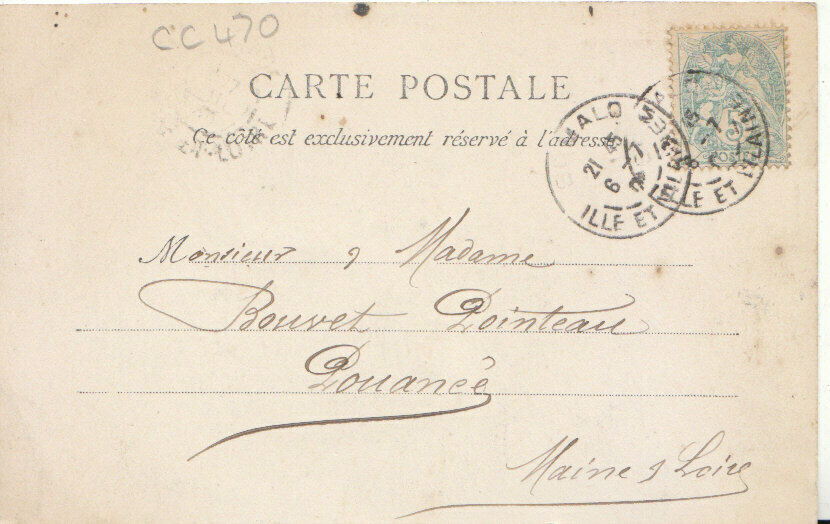 CC 470
CARTE POSTALE
Ce côté est exclusivement réservé à l'adresse
MALO
21
6
ILLE ET
ILLE ET VILAINE
POSTES
Monsieur & Madame
Bouvet Pointeau
Pouancé
Maine & Loire